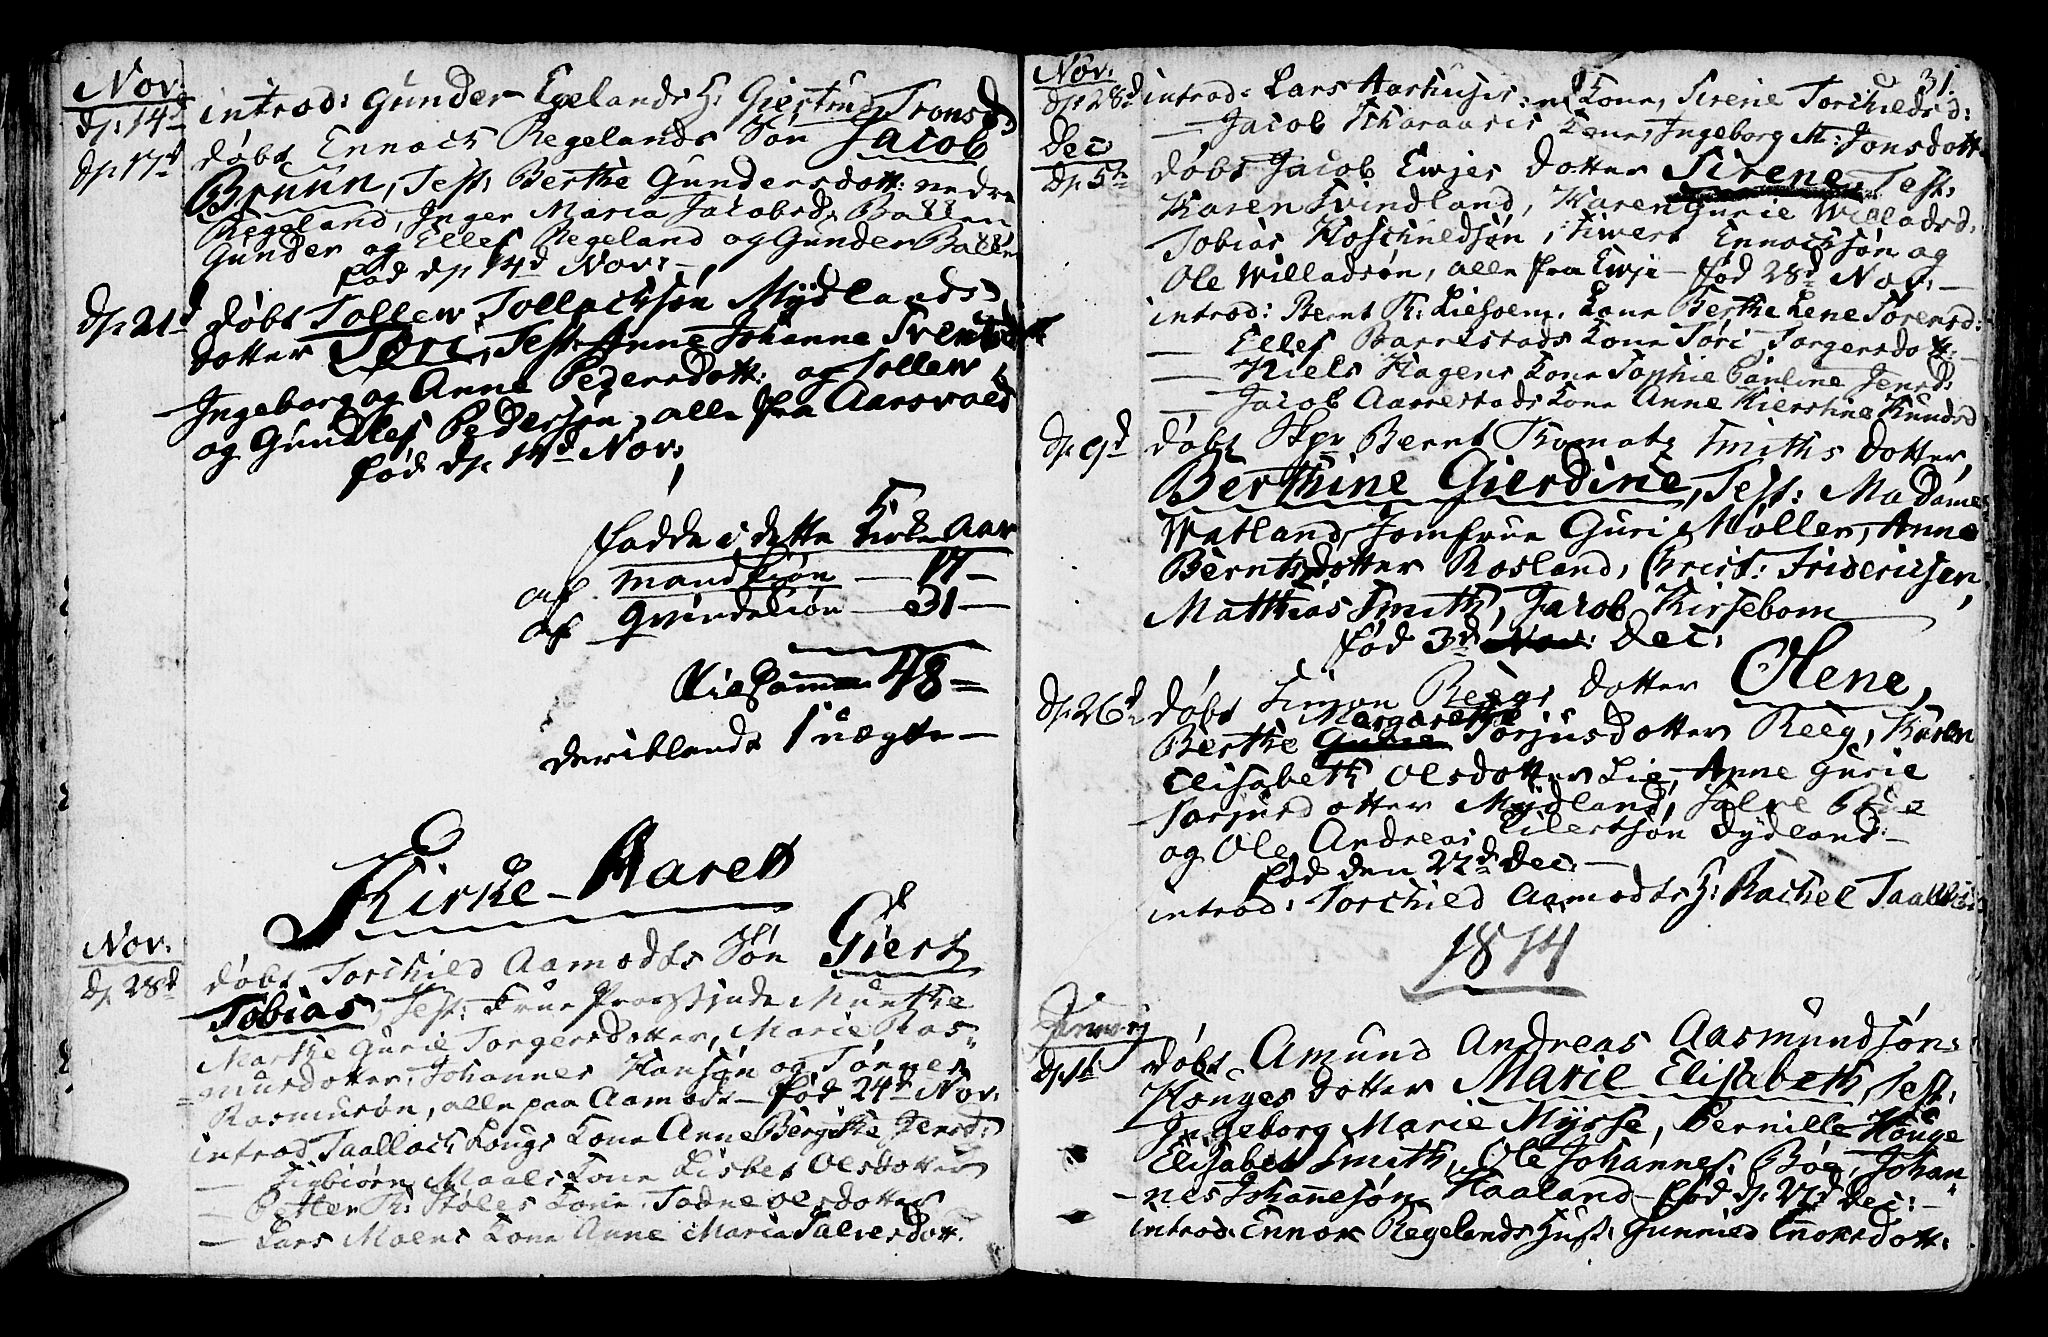 Nov:
d. 14d introd: Gunder Egelands H: Giertrud Tronsd:
d. 17d døbt Ennoch Regelands Søn Jacob
Bruun, Test: Berthe Gundersdott: nedre
Regeland, Inger Maria Jacobsd. Ballen
Gunder og Ellef Regeland og Gunder Ballen
fød d. 14d Nov: —
d. 21d døbt Tollew Tollachsøn Mydlands
dotter Tori, Test: Anne Johanne Svends
Ingeborg og Anne Pedersdott: og Tollew
og Gundlef Pedersøn, alle fra Aarsvold
fød d. 14d Nov:
fødde i dette Kirke Aar
af Mandkiøn — 17 —
af Qvindekiøn — 31 —
Tilsammen 48 =
deriblandt 1 uægte —
Kirke-Aaret
Nov:
d. 28d døbt Torchild Aamodts Søn Giert
Tobias, Test: Frue Provstinde Munthe
Marthe Gurie Torgersdotter, Marie Ras-
musdotter, Johannes Hansøn og Tønnes
Rasmusøn, alle paa Aamodt — fød 24d Nov:
introd Taallach Lougs Kone Anne Berthe Jensd:
— Torbiørn Maals Kone Lisbet Olsdotter
— Petter Th: Støles Kone Tadne Olsdotter
— Lars Moens Kone Anne Maria Salvesdott.
31.
Nov:
d. 28d introd: Lars Aarhuses Kone, Sirene Torchildsd:
— Jacob Skaraases Kone, Ingeborg M: Jonsdott
Dec
d. 5te døbt Jacob Ewjes dotter Sirene, Test:
Karen Svindland, Karen Gurie Willadsd:
Tobias Roschieldsøn, Siwert Ennochsøn og
Ole Willadsøn, alle fra Ewje — fød 28d Nov: —
introd: Bernt R: Kone Berthe Lene Sørensd:
— Ellef Barrestads Kone Tori Torgersdott: —
— Niels Hagens Kone Sophie Pauline Jensd:
— Jacob Aarrestads Kone Anne Kierstine Knudsd
d. 9d døbt Skpr Bernt Smiths dotter,
Berthine Gierdine, Test: Madame
Watland, Jomfrue Guri Møller, Anne
Berntsdotter Rosland, Christ: Friderichsen,
Matthias Smith, Jacob Kirsebom
fød 3d Nov: Dec:
d. 26d døbt Simon Reegs dotter Olene,
Berthe Gurie Margarethe Torjusdotter Reeg, Karen
Elisabeth Olsdotter Lie, Anne Gurie
Torjusdotter Mydland, Salve Reeg
og Ole Andreas Eilertsøn Dydland:
fød den 22d Dec: —
introd: Torchild Aamodts H: Rachel Taallachsd:
1814
January
d. 1te døbt Amund Andreas Aasmundsøn
Houges dotter Marie Elisabeth, Test:
Ingeborg Marie Mysse, Pernille Houge
Elisabet Smith, Ole Johannes: Bøe, Johan-
nes Johannesøn Haaland — fød d. 27d Dec: —
introd: Ennok Regelands Hust: Gunnild Enoksdott: